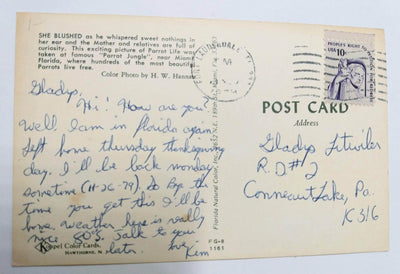 SHE BLUSHED as he whispered sweet nothings in
her ear and the Mother and relatives are full of
curiosity. This exciting picture of Parrot Life was
taken at the "Parrot Jungle", near Miami,
Florida, where hundreds of the most beautiful
Parrots live free.
Color Photo by H. W. Hannau
Gladys,
Hi! How are you?
Well I am in florida again
left home thursday thanksgiving
day. I'll be back monday
sometime (11-26-79) So By the
time you get this I'll be
home. weather here is really
nice 80's. Talk to you
later. love Kim
Koppel Color Cards,
HAWTHORNE, N.
Florida Natural Color, Inc.
FORT LAUDERDALE, FL
PM
USA 10c
POST CARD
Address
Gladys Litwiler
R.D #2
Conneaut Lake, Pa.
FG-9
1161